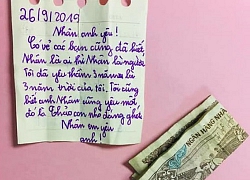 26/9/2019
Nhân anh yêu!
Có vẻ các bạn cũng đã biết
Nhân là ai hì Nhân là người
Tôi đã yêu thầm 3 năm
3 năm trời của tôi. Tôi cũng
biết anh Nhân cũng yêu
đó là
Nhân em yêu
anh!
NGÂN HÀNG NHÀ